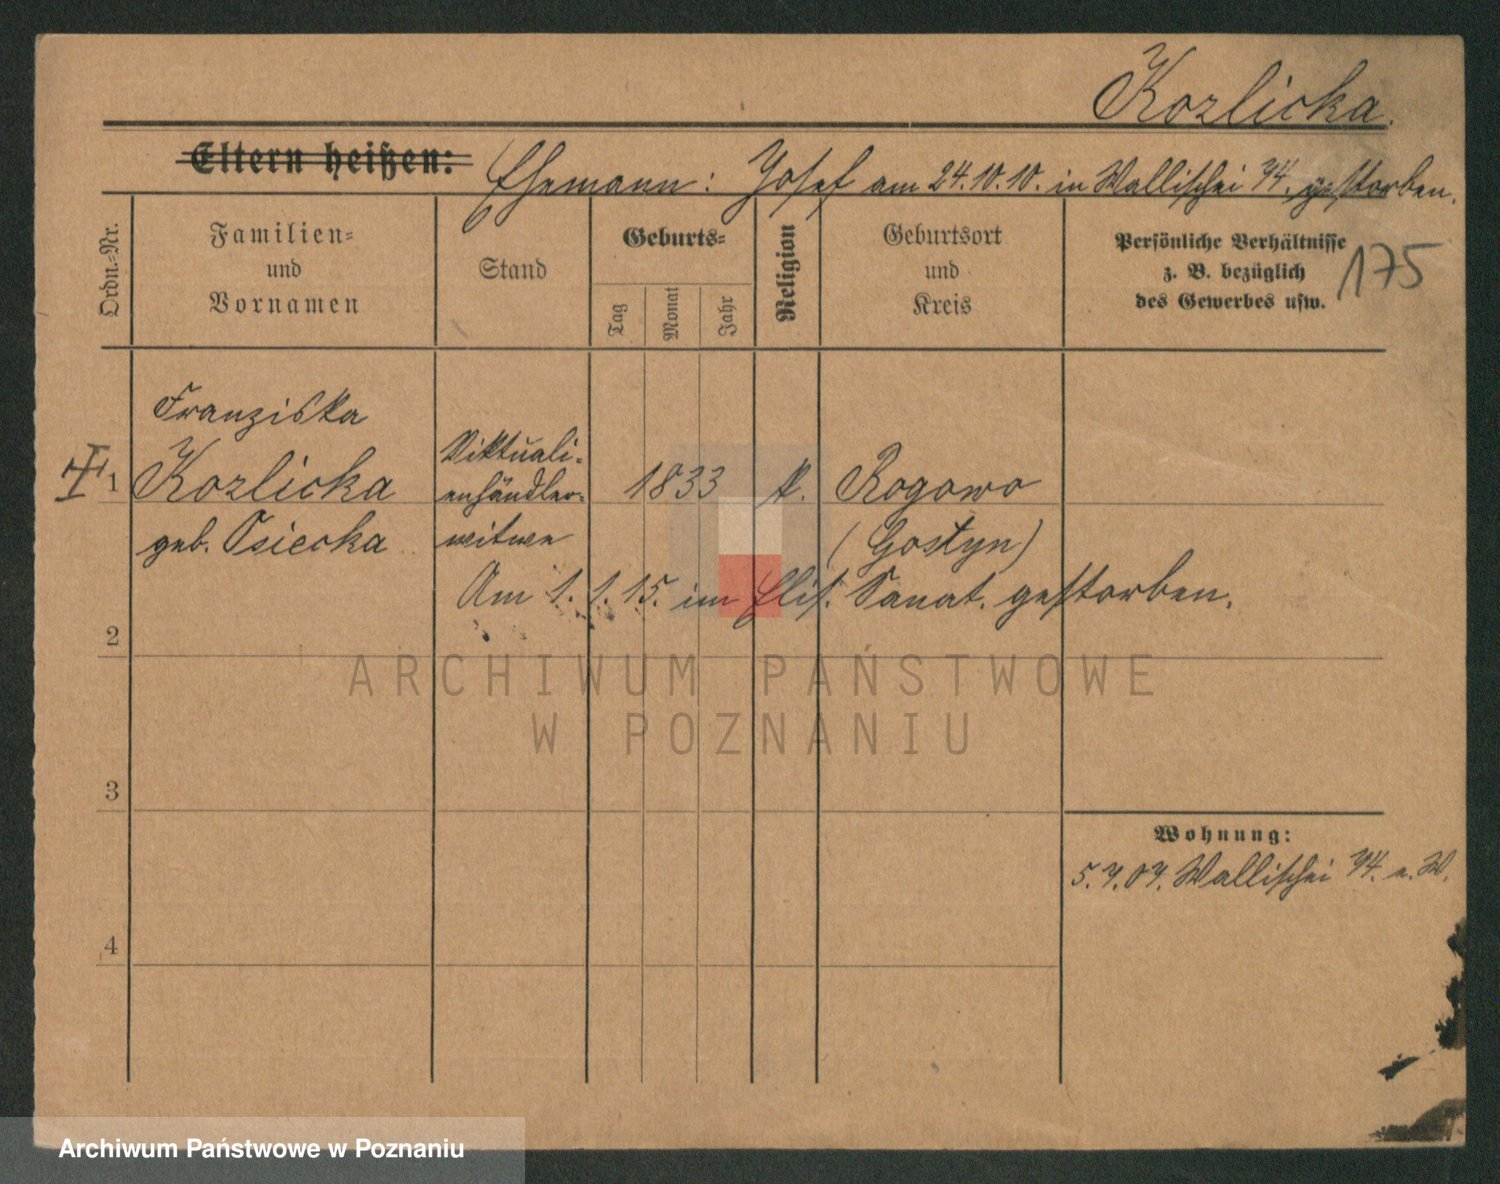 Kozlicka.
Eltern heißen: Ehemann: Josef am 24.10.10. in Wallischei 74. gestorben.
Ordn.-Nr.
Familien-
und
Vornamen
Stand
Geburts-
Tag
Monat
Jahr
Religion
Geburtsort
und
Kreis
Persönliche Verhältnisse
z. B. bezüglich
des Gewerbes usw.
175
Franziska
1 Kozlicka
geb. Osiecka
Viktuali-
enhändler-
witwe
1833
k.
Rogowo
(Gostyn)
Am 1.1.15. im Elis. Sanat. gestorben.
2
3
4
Wohnung:
5.7.07. Wallischei 74. a. W.
ARCHIWUM PAŃSTWOWE
W POZNANIU
Archiwum Państwowe w Poznaniu